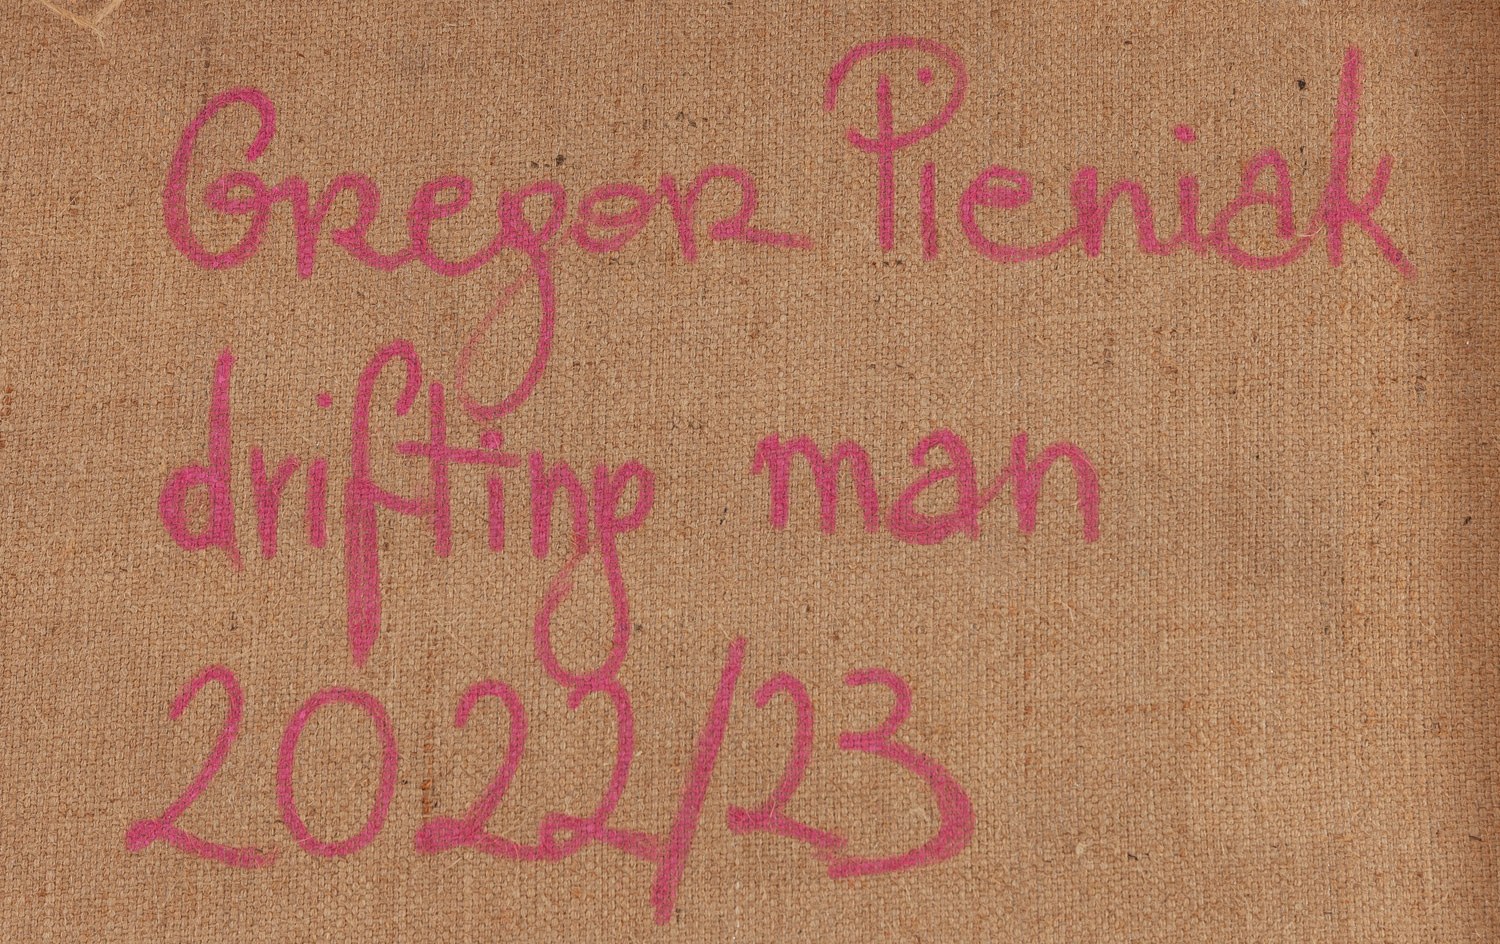 Gregor Pieniak
drifting man
2022/23